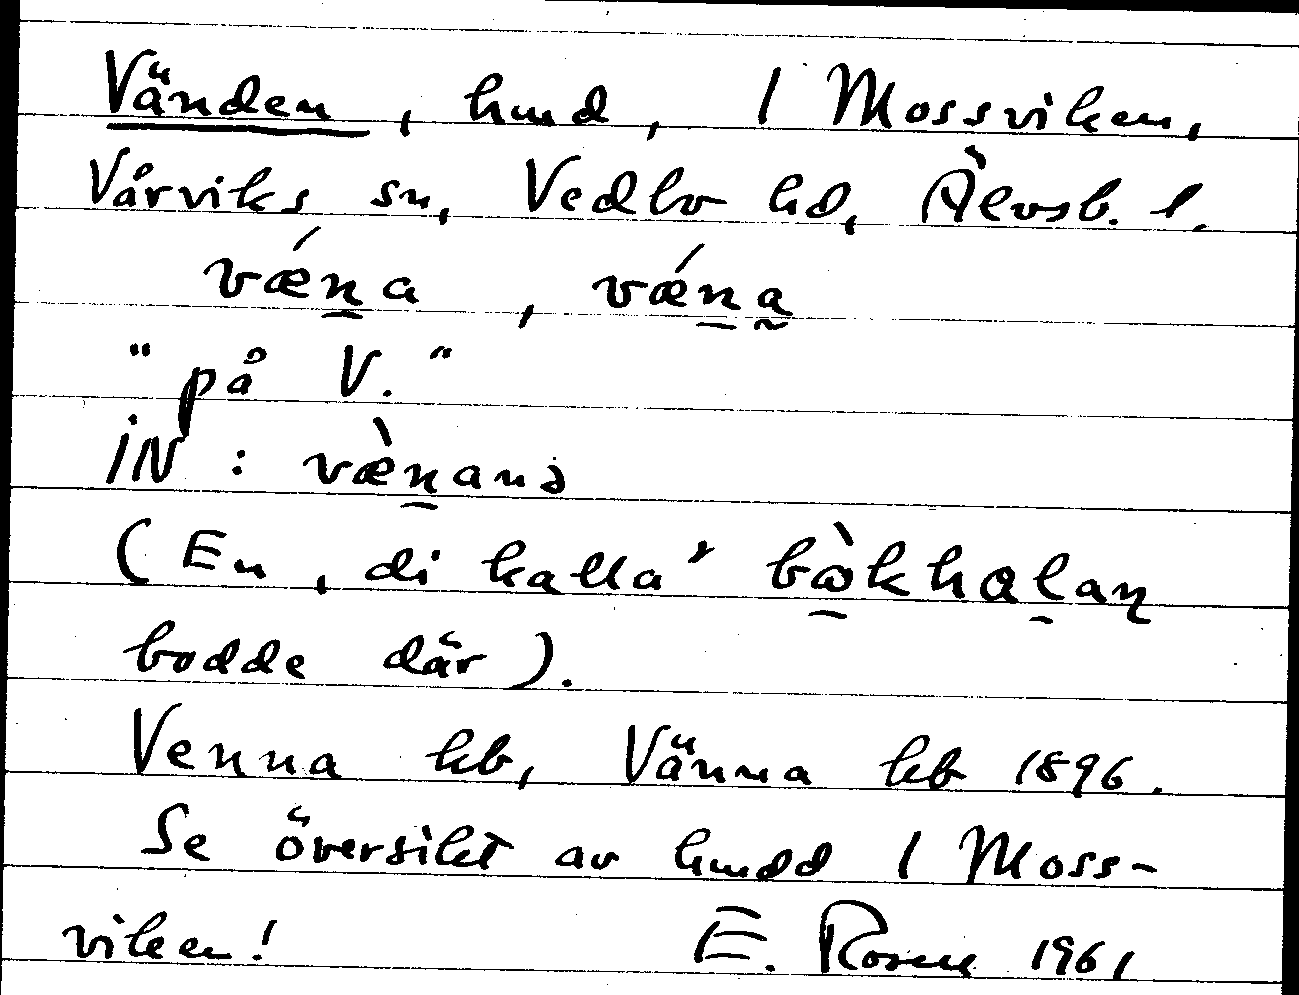 Vänden, hmd, 1 Mossviken,
Vårviks sn, Vedbo hd, Älvsb. l.
vǽn̠a, vǽn̠a̰
"på V."
iN: væ̀n̠anə
(En, di kalla' bὼ̠khal̠aɳ
bodde där).
Venna kb, Vänna kb 1896.
Se översikt av hmdd 1 Moss-
viken! E. Rosell 1961